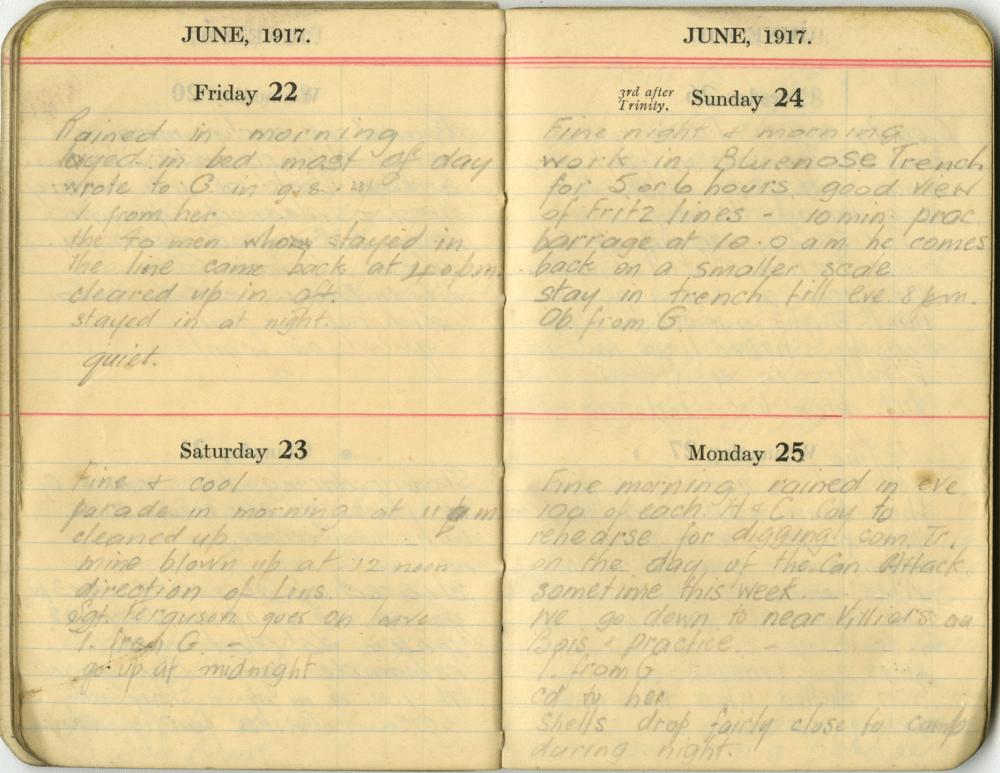 JUNE, 1917.
Friday 22
Rained in morning
layed in bed most of day
wrote to G. in g.e.
1. from her
the 40 men who stayed in
the line came back at p.m.
cleared up in aft.
stayed in at night.
quiet.
Saturday 23
Fine & cool
parade in morning at 11 a m
cleaned up.
mine blown up at 12 noon
direction of Lens.
Sgt. Ferguson goes on leave
1. from G. -
go up at midnight
JUNE, 1917.
3rd after
Trinity.
Sunday 24
Fine night & morning
work in Bluenose Trench
for 5 or 6 hours. good view
of Fritz lines - 10 min prac
barrage at 10.0 a m he comes
back on a smaller scale
stay in trench till eve. 8 p.m.
Ob. from G.
Monday 25
Fine morning, rained in eve
100 of each H & C. Coy to
rehearse for digging com. Tr.
on the day of the Can Attack
sometime this week.
we go down to near Villiers au
Bois & practice. -
1. from G
cd to her
shells drop fairly close to camp
during night.